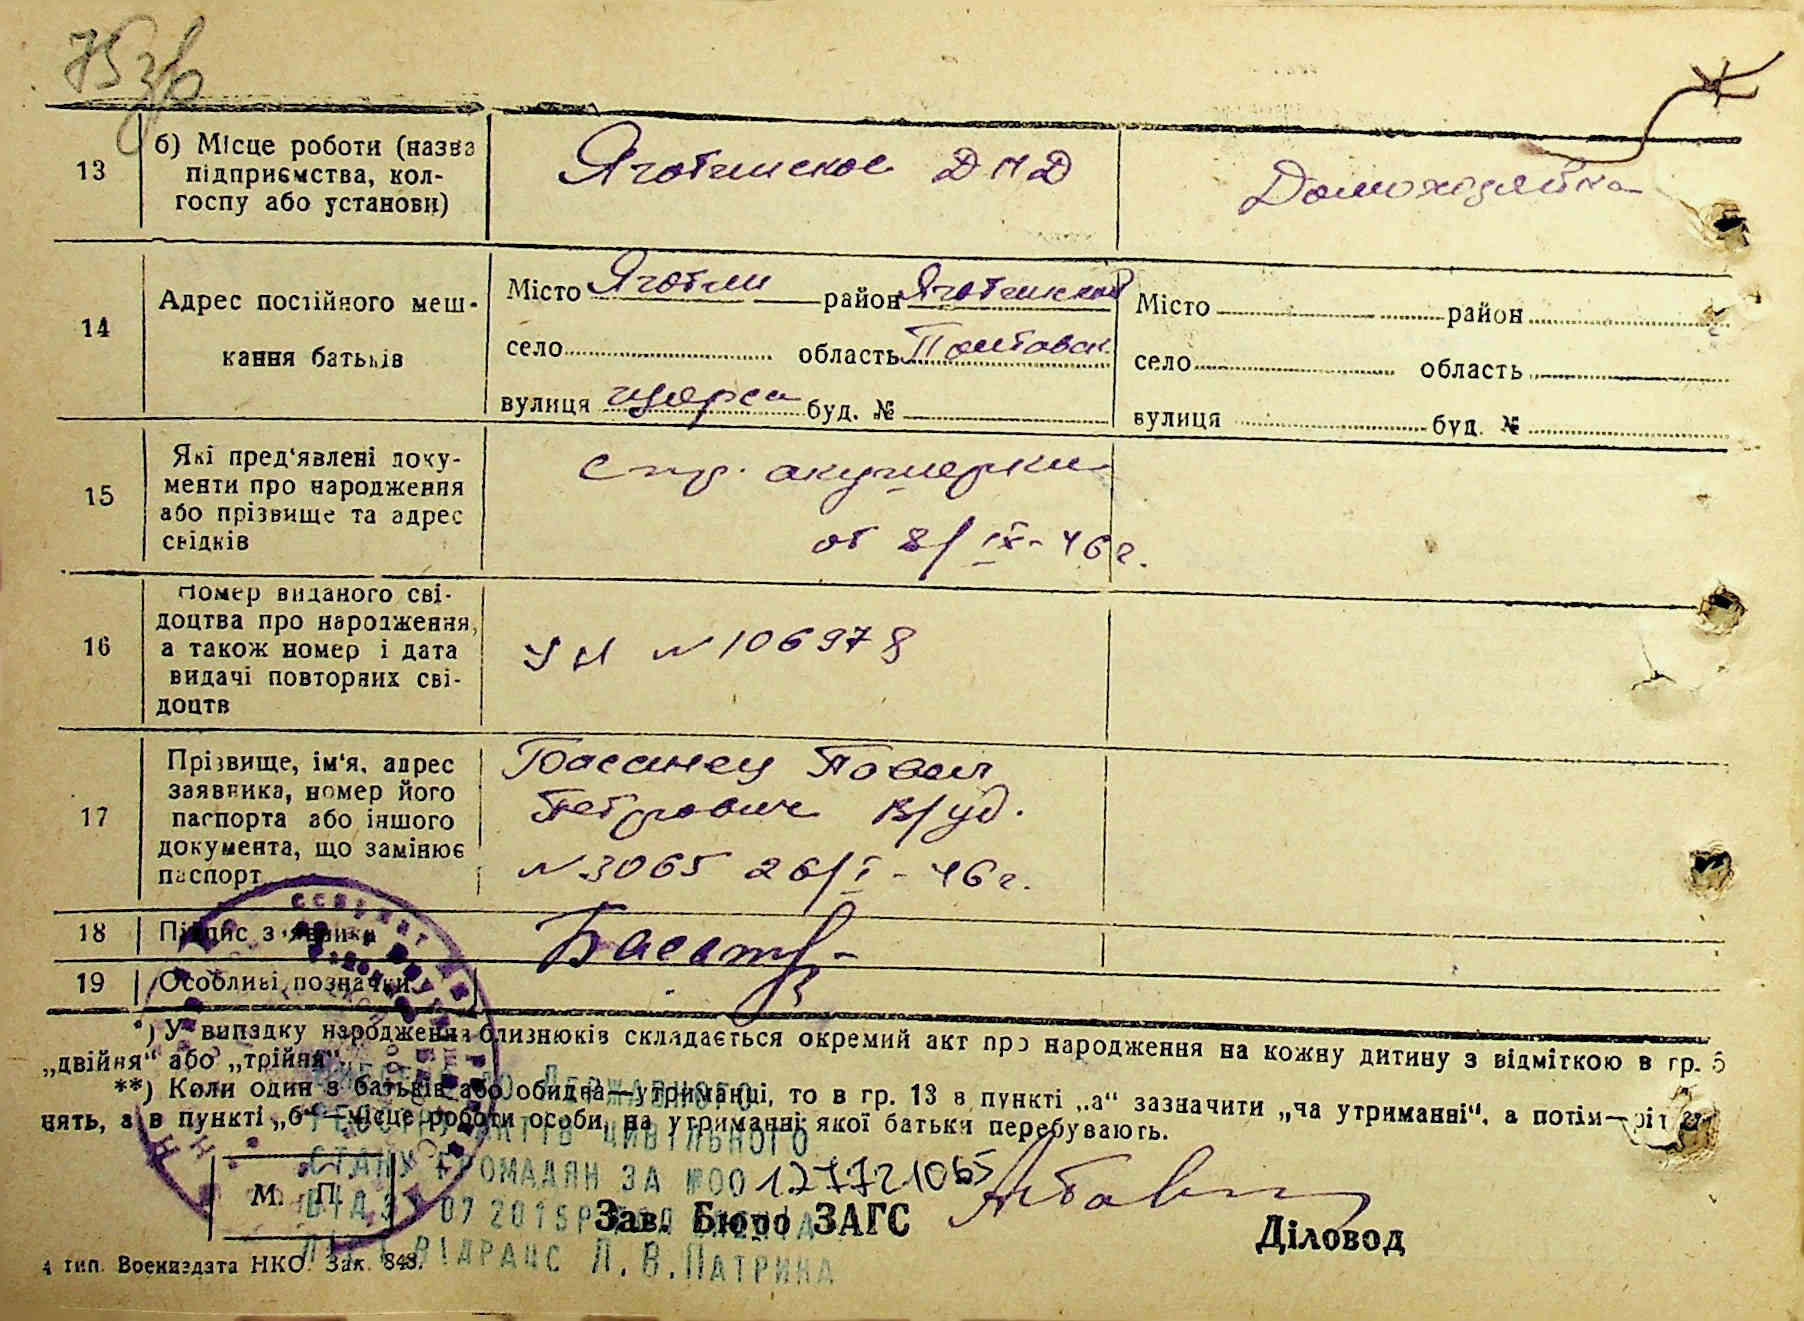 13
б) Місце роботи (назва
підприємства, кол-
госпу або установи)
Яготинское ДМД
Домохозяйка
14
Адрес постійного меш-
кання батьків
Місто Яготин район Яготинский
село область Полтавск.
вулиця Щорса буд. №
Місто район
село область
вулиця буд. №
15
Які пред‘явлені доку-
менти про народження
або прізвище та адрес
свідків
Спр. акушерки
от 8/IX-46 г.
16
Номер виданого сві-
доцтва про народження,
а також номер і дата
видачі повторних сві-
доцтв
N 106978
17
Прізвище, ім‘я, адрес
заявника, номер його
паспорта або іншого
документа, що замінює
паспорт
Басанец Павел
Петрович В/уд.
N 3065 26/I-46 г.
18
Підпис заявника
19
Особливі позначки
*) У випадку народження близнюків складається окремий акт про народження на кожну дитину з відміткою в гр. 6
„двійня“ або „трійня“.
**) Коли один з батьків або обидва—утриманці, то в гр. 13 в пункті „а“ зазначити „на утриманні“, а потім—
нять, а в пункті „б“—місце роботи особи, на утриманні якої батьки перебувають.
Державного
актів цивільного
стану громадян за №00127721065
07 2015
Л.В.Патрина
М. П.
Зав. Бюро ЗАГС
Діловод
4 тип. Воениздата НКО. Зак. 848.